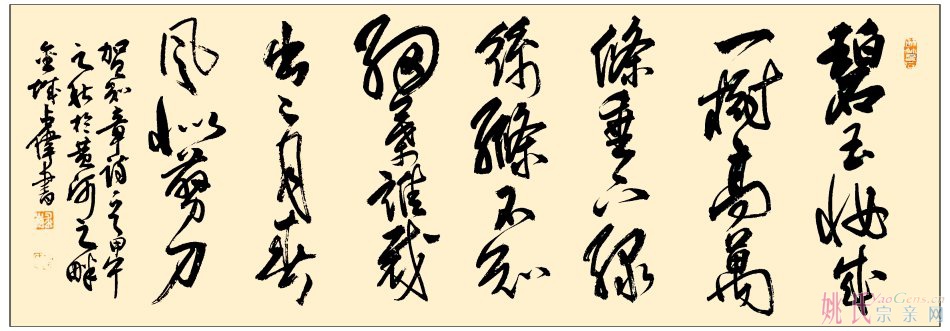 碧玉妝成
一樹高萬
條垂下綠
絲縧不知
細葉誰裁
出二月春
風似剪刀
賀知章詩 甲午
之秋於黃河之畔
金城 偉書
姚氏宗亲网
YaoGens.cn